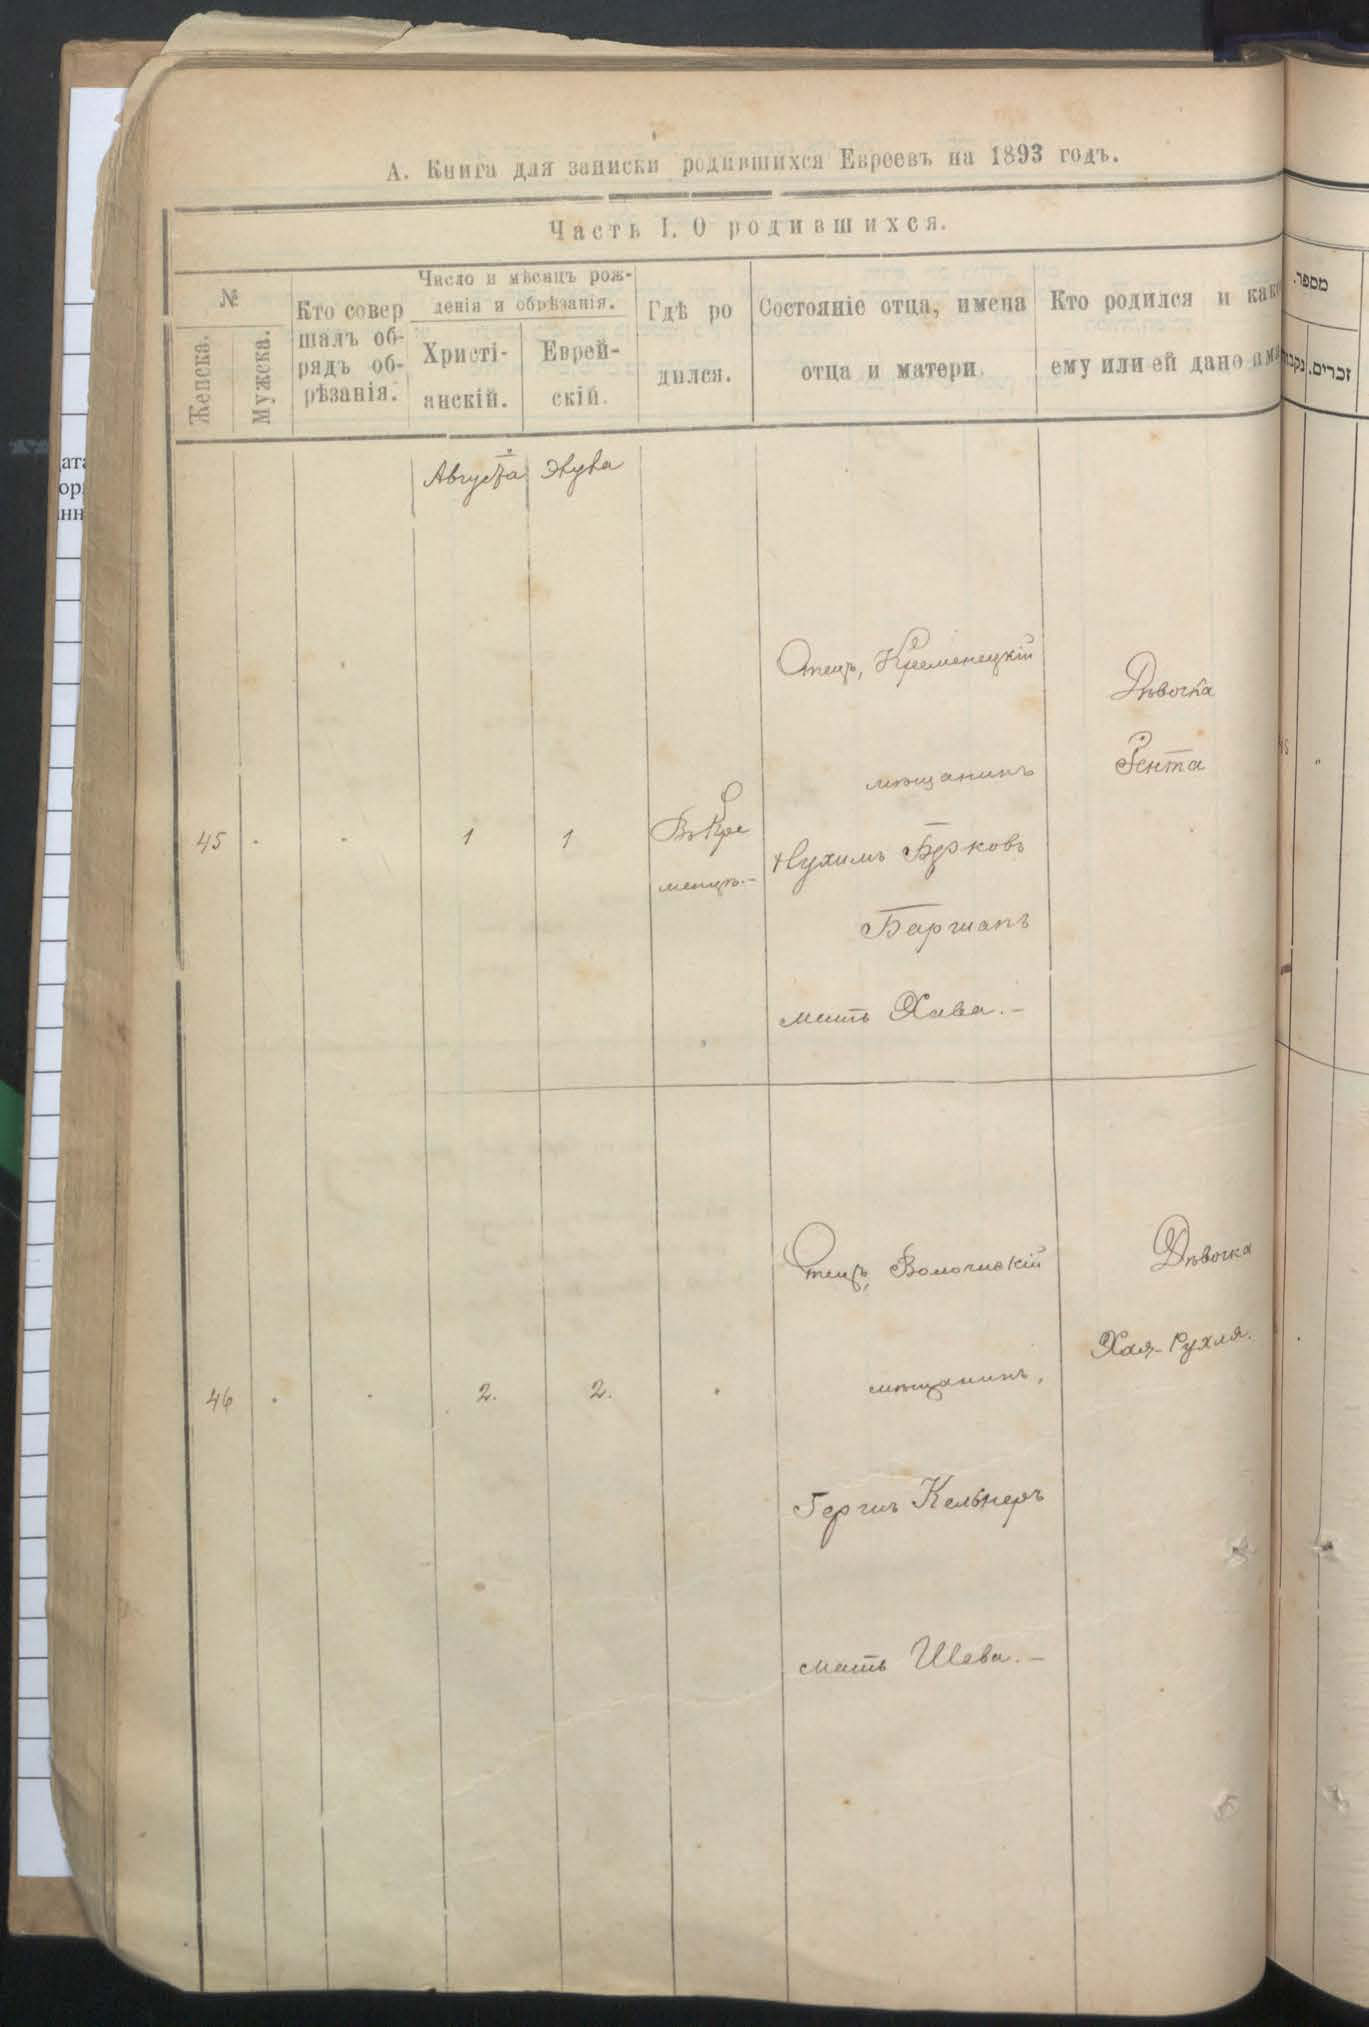 А. Книга для записки родившихся Евреевъ на 1893 годъ.
Часть I. О родившихся.
№
Женска.
Мужска.
Кто совер
шалъ об-
рядъ об-
рѣзанія.
Число и мѣсяцъ рож-
денія и обрѣзанія.
Христі-
анскій.
Еврей-
скій.
Гдѣ ро
дился.
Состояніе отца, имена
отца и матери.
Кто родился и како
ему или ей дано им
מספר.
זכרים.
נקב
Августа
Элула
45
1
1
Въ Кре
менцѣ.-
Отецъ, Кременецкій
мѣщанинъ
Нухимъ Берковъ
Баршапъ
мать Хава.-
Дѣвочка
Ента
46
2.
2.
Отецъ, Волочискій
мѣщанинъ,
Гершъ Кельнеръ
мать Шева.-
Дѣвочка
Хая-Рухля.